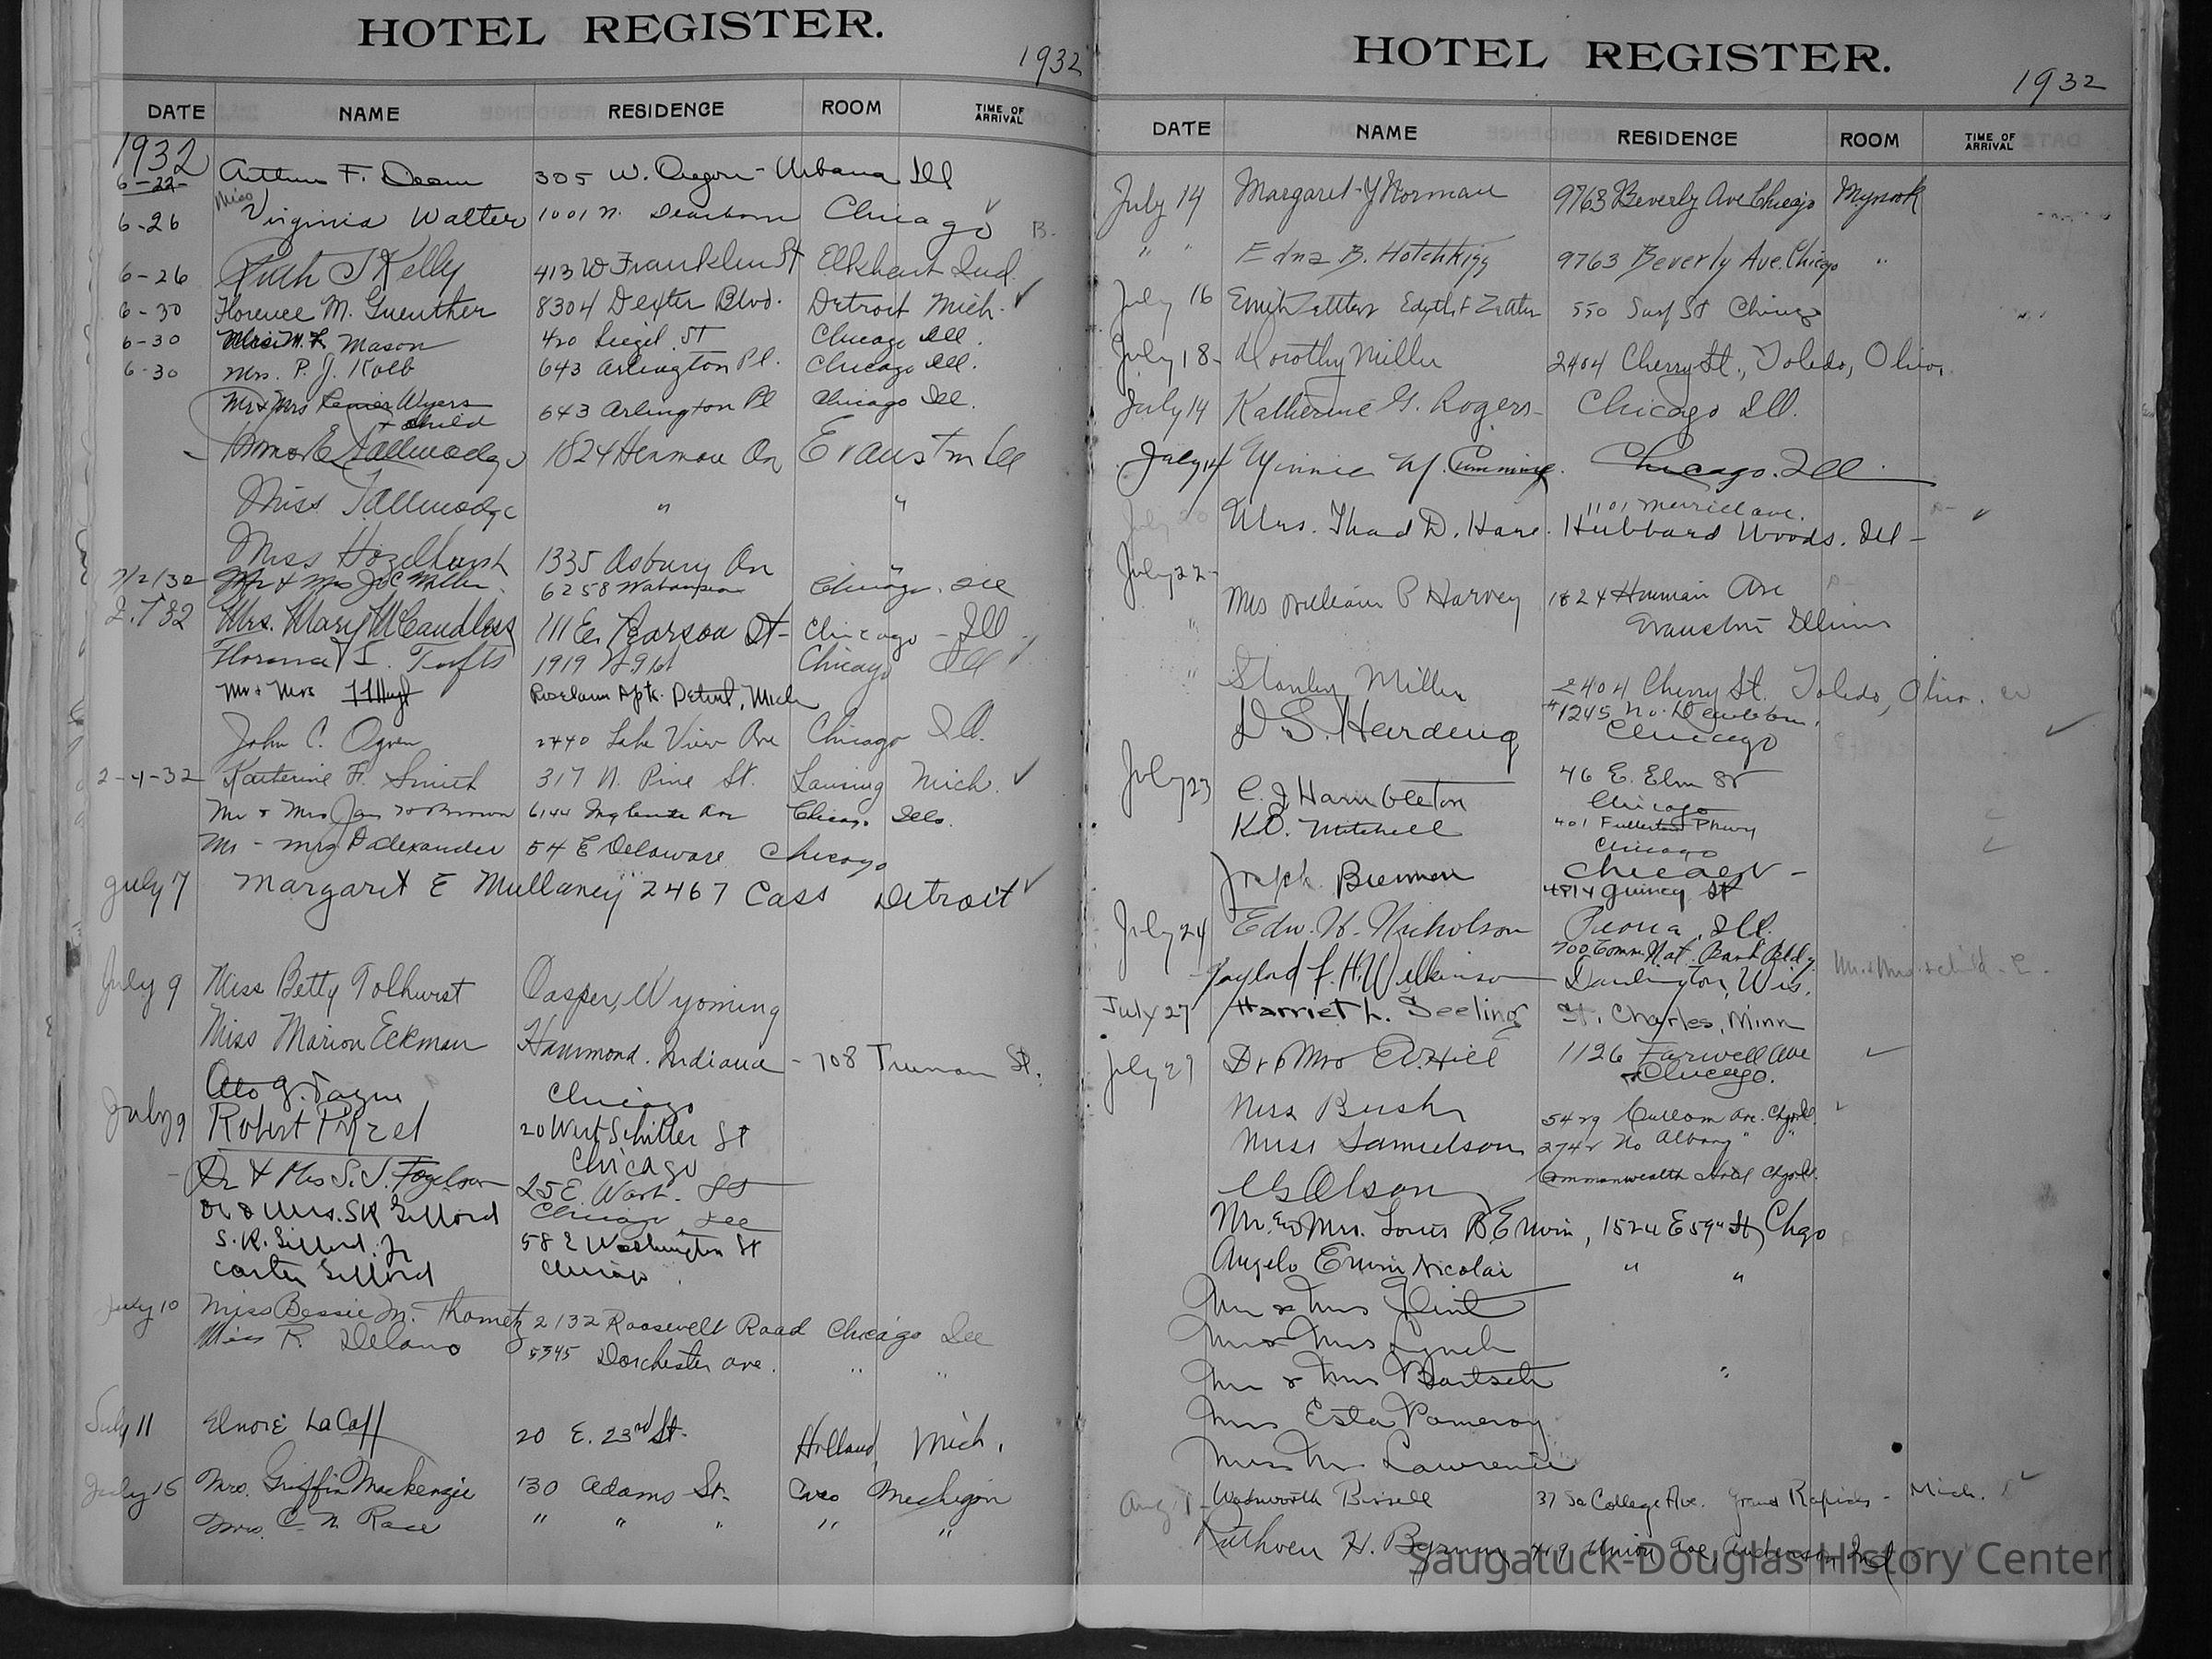 HOTEL REGISTER.
1932
DATE NAME RESIDENCE ROOM TIME OF ARRIVAL
1932
6-22- Arthur F. Deam 305 W. Oregon - Urbana Ill
6-26 Miss Virginia Walter 1001 N. Dearborn Chicago B-
6-26 Ruth J Kelly 413 W Franklin St Elkhart Ind.
6-30 Florence M. Guenther 8304 Dexter Blvd. Detroit Mich.
6-30 Mason 420 St Chicago Ill.
6-30 Mrs. P. J. Kolb 643 Arlington Pl. Chicago Ill.
Mr & Mrs Wyers 643 Arlington Pl Chicago Ill.
+ child
Tallmadge 1824 Av Evanston Ill
Miss Tallmadge " "
Miss Hazelhurst 1335 Asbury Av "
7/2/32 Mr & Mrs Miller 6258 Chicago. Ill
Mrs. Mary McCandless 111 E. Pearson St- Chicago - Ill
I. Tufts 1919 Chicago Ill
Mr & Mrs Apts. Detroit, Mich
John C. 2440 Lake View Ave Chicago Ill.
2-4-32 Katherine F. Smith 317 N. Pine St. Lansing Mich.
Mr & Mrs Brown 6144 Ave Chicago Ills.
Mr - Mrs Alexander 54 E Delaware Chicago
July 7 Margaret E Mullaney 2467 Cass Detroit
July 9 Miss Betty Tolhurst Casper, Wyoming
Miss Marion Eckman Hammond. Indiana - 708 Truman St.
Chicago
July 9 Robert 20 West Schiller St
Chicago
Dr & Mrs S. J. Fogelson 25 E. Wash. St
Chicago Ill
Dr & Mrs. SK
S. K. Jr 58 E Washington St
Carter Chicago
July 10 Miss Bessie M. Thometz 2132 Roosevelt Road Chicago Ill
Miss R. Delano 5345 Dorchester Ave. " "
July 11 Elnore LaCaff 20 E. 23rd St. Holland, Mich.
July 15 Mrs. Griffin Mackenzie 130 Adams St- Caro Michigan
Mrs. C. N. Race " " " " "
HOTEL REGISTER.
1932
DATE NAME RESIDENCE ROOM TIME OF ARRIVAL
July 14 Margaret Y Norman 9763 Beverly Ave Chicago
" " Edna B. Hotchkiss 9763 Beverly Ave. Chicago "
July 16 550 Surf St Chicago
July 18- Dorothy Miller 2404 Cherry St., Toledo, Ohio,
July 14 Katherine G. Rogers- Chicago Ill.
July 14 Minnie M. Chicago. Ill
1101 Merrill Ave.
Mrs. Thad D. Hare. Hubbard Woods. Ill -
July 22-
Mrs William P Harvey 1824 Ave
" Evanston Illinois
" Stanley Miller 2404 Cherry St. Toledo, Ohio.
#1245 No. Dearborn,
D. S. Harding Chicago
July 23 46 E. Elm St
C. J Hambleton Chicago
K. O. Mitchell 401 Fullerton Pkwy
Chicago
Joseph Chicago -
4814 Quincy St
July 24 Edw. H. Nicholson Peoria, Ill.
700 Comm. Nat. Bank Bldg.
Wilkinson Darlington, Wis.
July 27 Harriet L. Seeling St. Charles, Minn
July 27 Dr & Mrs Hill 1126 Farwell Ave
Chicago.
Miss Bush 5429 Cullom Ave. Chgo Ill.
Miss Samuelson 2742 No Albany " "
Olson Commonwealth Hotel Chgo Ill.
Mr. and Mrs. Louis B Erwin, 1524 E 59th St, Chgo
Angelo Erwin Nicolai " "
Mr & Mrs Flint
Mr & Mrs Lynch
Mr & Mrs Bartsch "
Mrs Esta Pomeroy
Miss M Lawrence
Aug 1- Wadsworth Bissell 37 So College Ave. Grand Rapids - Mich.
Ruthven H. 419 Union Ave, Anderson Ind
Saugatuck-Douglas History Center